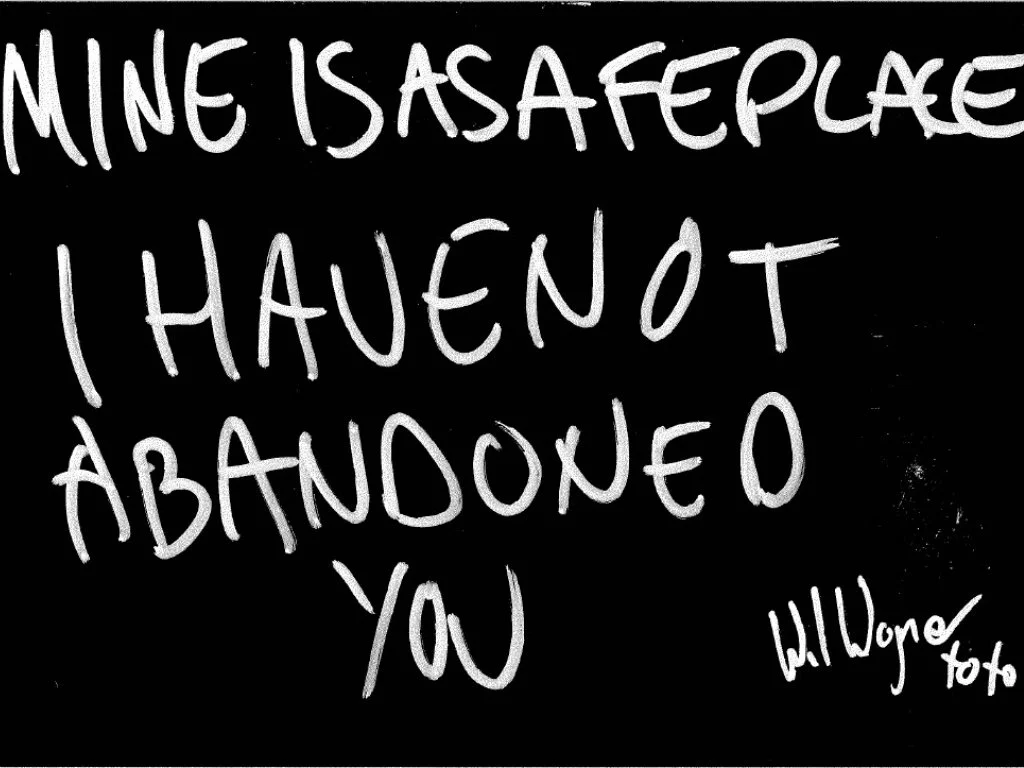 MINE IS A SAFE PLACE
I HAVE NOT
ABANDONED
YOU
Will Wagner
toto